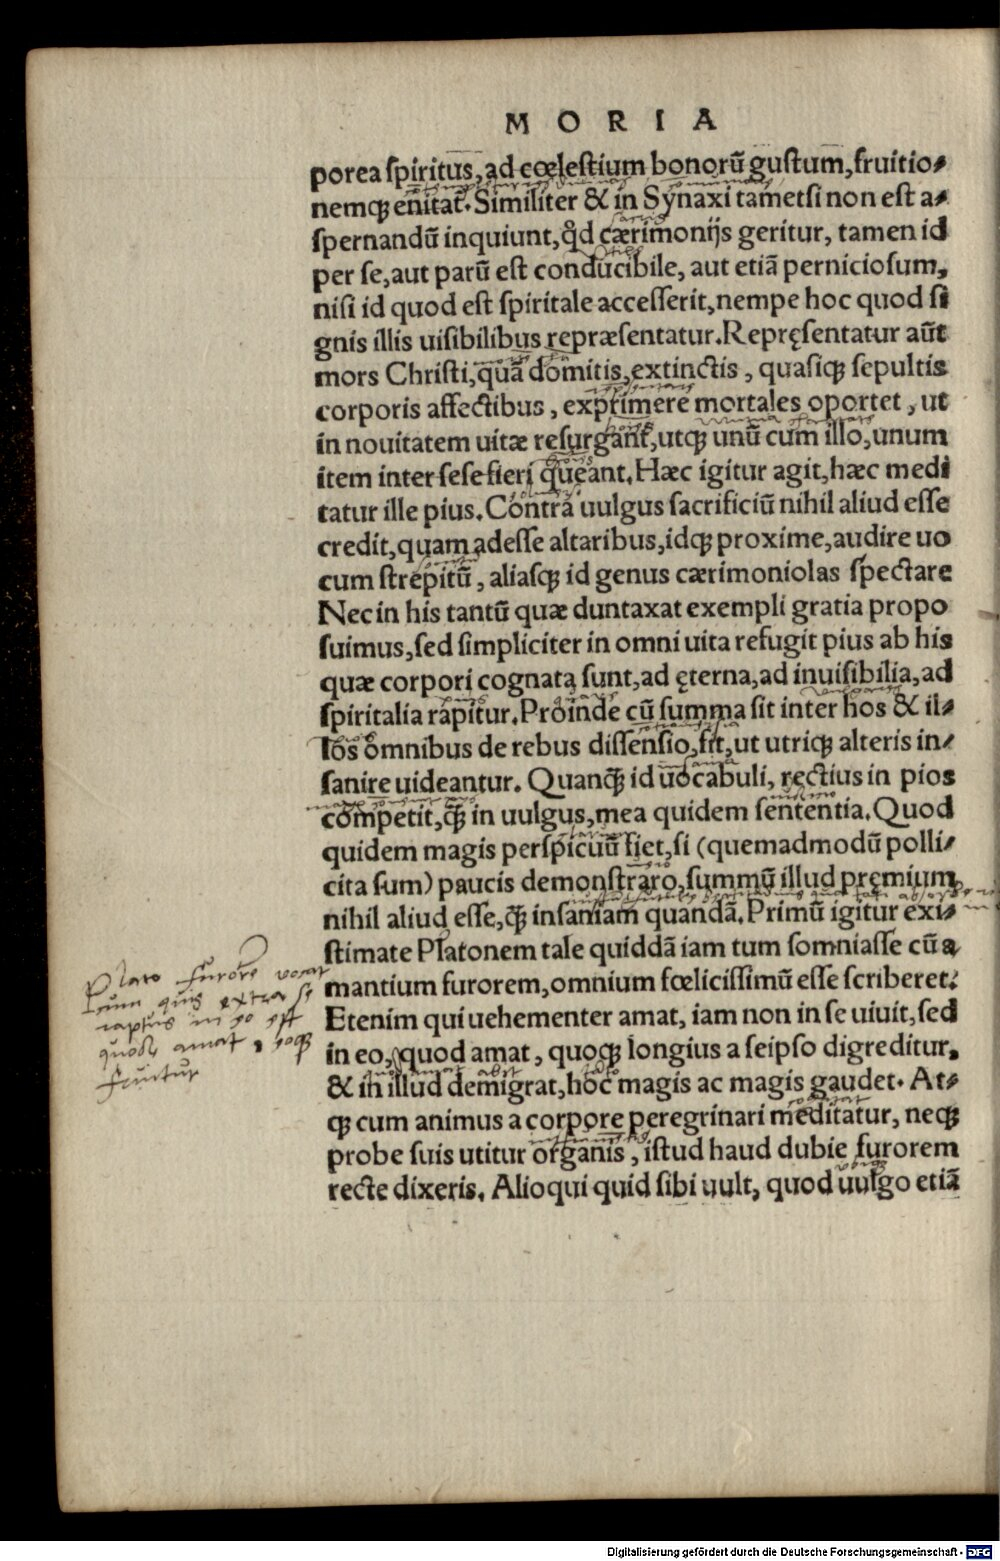 MORIA
porea spiritus, ad cœlestium bonorũ gustum, fruitio-
nemq; enitat̃. Similiter & in Synaxi tametsi non est a-
spernandũ inquiunt, qd̃ cærimonijs geritur, tamen id
per se, aut parũ est conducibile, aut etiã perniciosum,
nisi id quod est spiritale accesserit, nempe hoc quod si
gnis illis uisibilibus repræsentatur. Repręsentatur aũt
mors Christi, quã domitis, extinctis, quasiq; sepultis
corporis affectibus, exprimere mortales oportet, ut
in nouitatem uitæ resurgant, utq; unũ cum illo, unum
item inter sese fieri queant. Hæc igitur agit, hæc medi
tatur ille pius. Contra uulgus sacrificiũ nihil aliud esse
credit, quam adesse altaribus, idq; proxime, audire uo
cum strepitũ, aliasq; id genus cærimoniolas spectare
Nec in his tantũ quæ duntaxat exempli gratia propo
suimus, sed simpliciter in omni uita refugit pius ab his
quæ corpori cognata sunt, ad ęterna, ad inuisibilia, ad
spiritalia rapitur. Proinde cũ summa sit inter hos & il-
los omnibus de rebus dissensio, fit, ut utriq; alteris in-
sanire uideantur. Quanq̃ id uocabuli, rectius in pios
competit, q̃ in uulgus, mea quidem sententia. Quod
quidem magis perspicuũ fiet, si (quemadmodũ polli-
cita sum) paucis demonstraro, summũ illud pręmium
nihil aliud esse, q̃ insaniam quandã. Primũ igitur exi-
stimate Platonem tale quiddã iam tum somniasse cũ a
mantium furorem, omnium fœlicissimũ esse scriberet.
Etenim qui uehementer amat, iam non in se uiuit, sed
in eo, quod amat, quoq; longius a seipso digreditur,
& in illud demigrat, hoc magis ac magis gaudet. At-
q; cum animus a corpore peregrinari meditatur, neq;
probe suis utitur organis, istud haud dubie furorem
recte dixeris. Alioqui quid sibi uult, quod uulgo etiã
Plato furore vocat
cum quis extra se
raptus in eo est
quod amat, eoq;
fruitur
Digitalisierung gefördert durch die Deutsche Forschungsgemeinschaft - DFG